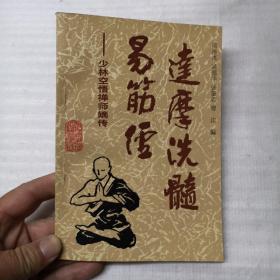 達摩洗髓
易筋经
——少林空悟禅师嫡传
编